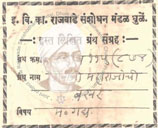 इ. वि. का. राजवाडे संशोधन मंडळ धुळे.
हस्त लिखित ग्रंथ संग्रह
ग्रंथ क्रमांक
ग्रंथ नाम महाराजांची
बखर
विषय म. गद्य.